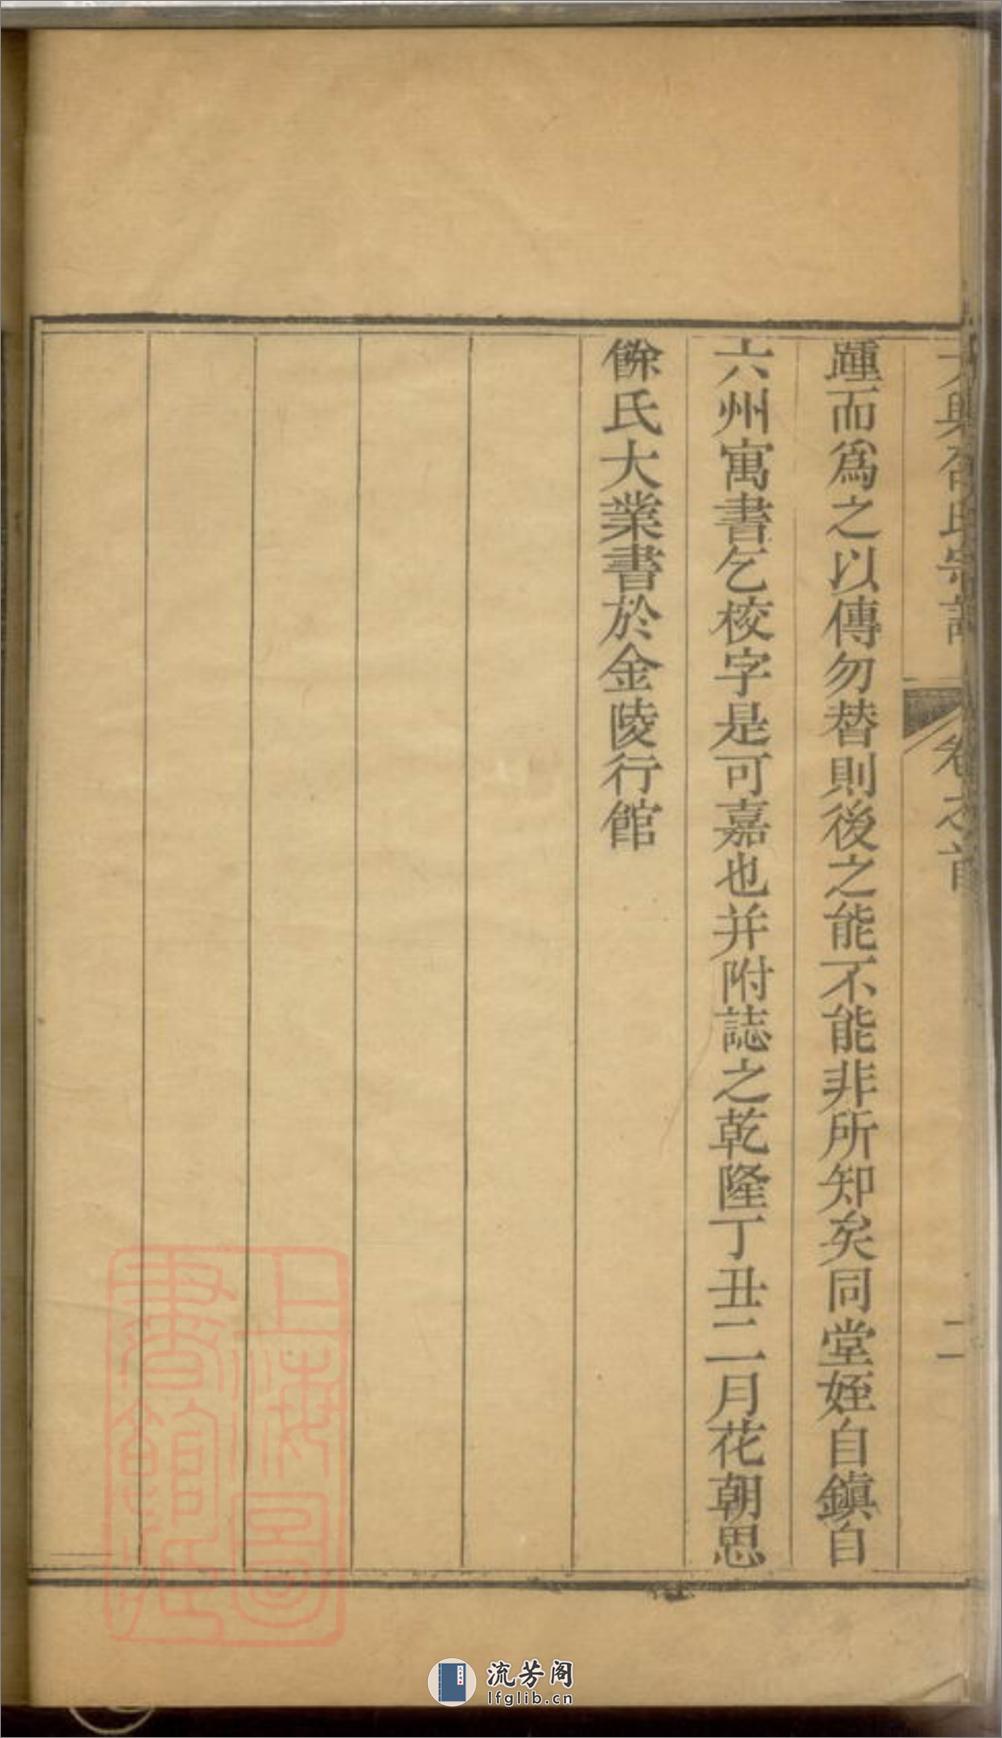 大興邵氏宗譜 卷之首 二
踵而爲之以傳勿替則後之能不能非所知矣同堂姪自鎮自
六州寓書乞校字是可嘉也并附誌之乾隆丁丑二月花朝思
餘氏大業書於金陵行館
上海圖書館藏
流芳阁
lfglib.cn